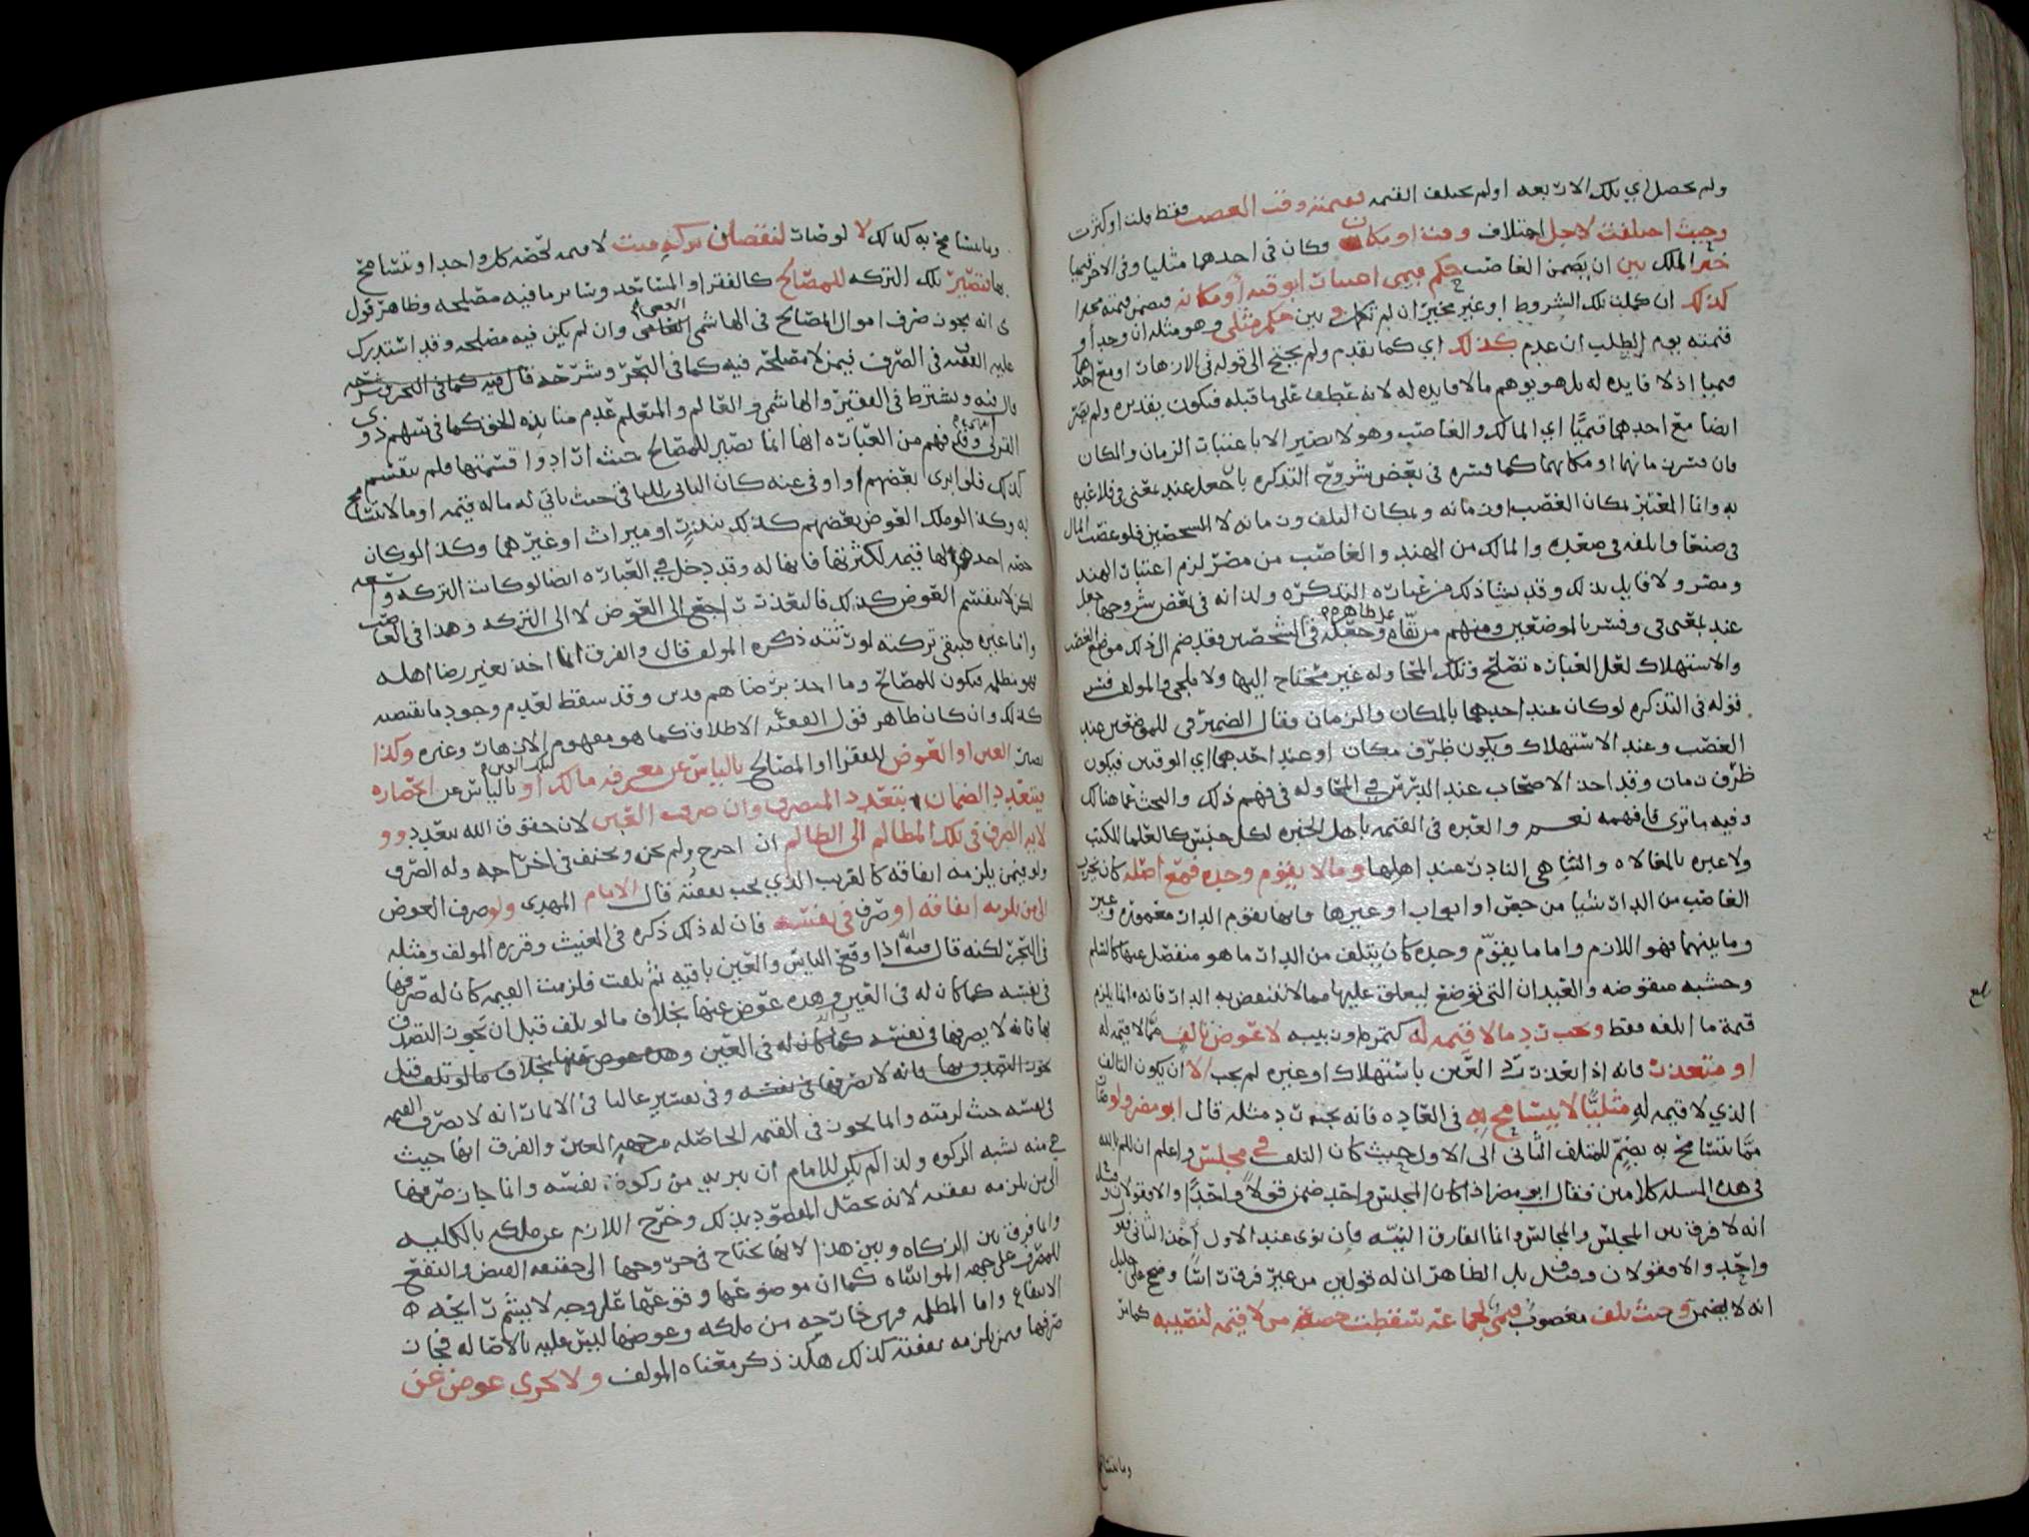 ولم يحصل اي تلك الاربعه او لم تختلف القيمه فقيمته وقت الغصب فقط قلت او كثرت
وحيث اختلفت لاجل اختلاف وقت او مكان وكان في احدهما مثليا وفي الاخر قيميا
خير المالك بين ان يضمن الغاصب حكم قيمي
كذلك ان كملت تلك الشروط او غير مخير ان لم تكمل وبين حكم مثلي وهو مثله ان وجد او
قيمته يوم الطلب ان عدم كذلك اي كما تقدم ولم يحتج الى قوله في الازهار او مع احدهما
قيميا اذ لا فايده له بل هو يوهم ما لا فايده له لانه عطف على ما قبله فيكون تقديره ولم يصر
ايضا مع احدهما قيميا اي المالك والغاصب وهو لا يصير الا باعتبار الزمان والمكان
فان فسر بزمانهما او مكانهما كما فسره في بعض شروح التذكره بان جعل عند بمعنى في فلا عبره
به وانما المعتبر بمكان الغصب وزمانه وبمكان التلف وزمانه لا الشخصين فلو غصب المال
في صنعا واتلفه في صعده والمالك من الهند والغاصب من مصر لزم اعتبار الهند
ومصر ولا قايل بذلك وقد نشا ذلك من عبارة التذكره ولذا انه في بعض شروحها جعل
عند بمعنى في وفسر بالموضعين ومنهم من بقاه على ظاهره وجعله في الشخصين وقد ضم الى ذلك موضع الغصب
والاستهلاك لعل العباره تصلح وتلك المحاوله غير محتاج اليها ولا ملجى والمولف فسر
قوله في التذكره لو كان عند احدهما بالمكان والزمان فقال الضمير في للموضعين عند
الغصب وعند الاستهلاك ويكون ظرف مكان او عند احدهما اي الوقتين فيكون
ظرف زمان وقد اخذ الاصحاب عند الدرس في المحاوله في فهم ذلك والبحث عما هنالك
وفيه ما ترى فافهمه نعم والعبره في القيمه باهل الخبره لكل جنس كالعلما للكتب
ولا عبره بالمغالاه والتناهي النادر عند اهلها وما لا يقوم وحده فمع اصله كان يخرب
الغاصب من الدار شيا من جص او ابواب او غيرها فانها تقوم الدار معموره وغير
وما بينهما فهو اللازم واما ما يقوم وحده كان يتلف من الدار ما هو منفصل عنها كالسلم
وخشبه منقوضه والعيدان التي توضع ليعلق عليها مما لا تنقص به الدار فانه انما يلزم
قيمة ما اتلفه فقط ويجب رد ما لا قيمه له كتمره وزبيبه لا عوض تالف مما لا قيمه له
او متعذر فانه اذا تعذر رد العين باستهلاك او غيره لم يجب الا ان يكون التالف
الذي لا قيمه له مثليا لا يتسامح به في العاده فانه يجب رد مثله قال ابو مضر ولو كان
مما يتسامح به يضم للمتلف الثاني الى الاول حيث كان التلف في مجلس واعلم ان للمويد بالله
في هذه المسله كلامين فقال ابو مضر اذا كان المجلس واحد ضمن قولا واحدا والا فقولان وقيل
انه لا فرق بين المجلس والمجالس وانما الفارق النيه فان نوى عند الاول اخذ الثاني
واحد والا فقولان وقيل بل الظاهر ان له قولين من غير فرق
انه لا يضمن وحيث تلف مغصوب قيمي لجماعه تسقط حصة من لا قيمه لنصيبه
وما يتسامح
وما يتسامح به كذلك لا لو صارت لنقصان تركه ميت لا قيمه لحصه كل واحد او يتسامح
بها فتصير تلك التركه للمصالح كالفقرا والمساجد وساير ما فيه مصلحه وظاهر قول
انه يجوز صرف اموال المصالح في الهاشمي الغني وان لم يكن فيه مصلحه وقد استدرك
عليه الفقيه في الصرف فيمن لا مصلحه فيه كما في البحر وشرحه قال فيه كما في البحر وشرحه
قال فيه ويشترط في الفقير والهاشمي والعالم والمتعلم عدم منابذه الحق كما في سهم ذوي
القربى وقد فهم من العباره انها انما تصير للمصالح حيث ارادوا قسمتها فلم تنقسم
كذلك فلو ابرى بعضهم او اوفي عنه كان الباقي للباقي حيث باقي له ماله قيمه او ما لا يتسامح
به وكذا لو ملك العوض بعضهم كذلك بنذر او ميراث او غيرهما وكذا لو كان
حصه احدهم لها قيمه لكثرتها فانها له وقد دخل في العباره ايضا لو كانت التركه واسعه
لكن لا ينقسم العوض كذلك فالتعذر راجع الى العوض لا الى التركه وهذا في الغاصب
واما غيره فتبقى تركته لورثته ذكره المولف قال والفرق انما اخذ بغير رضا اهله
فهو مظلمه فيكون للمصالح وما اخذ برضاهم فدين وقد سقط لعدم وجود ما يقتضيه
كذلك وان كان ظاهر قول الفقيه الاطلاق كما هو مفهوم الازهار وغيره وكذا
تصير العين او العوض للفقرا او المصالح بالياس عن معرفة مالك او بالياس عن انحصاره
يتعدد الضمان بتعدد المتصرف وان صرف العين لان حقوق الله تتعدد وو
لايه الصرف في تلك المظالم الى الظالم ان احرج ولم يجن ويحيف في اخراجه وله الصرف
ولو فيمن يلزمه انفاقه كالقريب الذي يجب نفقته قال الامام المهدي ولو صرف العوض
الى من يلزمه انفاقه او صرف في نفسه فان له ذلك ذكره في الغيث وقرره المولف ومثله
في البحر لكنه قال فيه اذا وقع الياس والعين باقيه ثم تلفت فلزمت القيمه كان له صرفها
في نفسه كما كان له في العين وهذه عوض عنها بخلاف ما لو تلف قبل ان يجوز التصرف
بها فانه لا يصرفها في نفسه كما كان له في العين وهذه عوض عنها بخلاف ما لو تلف قبل
يجوز التصرف بها فانه لا يصرفها في نفسه وفي تفسير عاليا في الابيات انه لا يصرف القيمه
في نفسه حيث لزمته وانما يجوز في القيمه الحاصله من جهة العين والفرق انها حيث
هي منه تشبه الزكوه ولذا لم يكن للامام ان يبريه من زكوة نفسه وانما جاز صرفها
الى من يلزمه نفقته لانه يحصل المقصود بذلك وخرج اللازم عن ملكه بالكليه
وانما فرق بين الزكاه وبين هذا لانها تحتاج في خروجها الى حقيقه القبض والنفع
للمصرف على جهة المواساه كما ان موضوعها وقوعها على وجه لا يشم رايحه
الانتفاع واما المظلمه فهي خارجه من ملكه وعوضها ليس عليه بالاصاله فجاز
صرفها فيمن يلزمه نفقته كذلك هكذا ذكر معناه المولف ولا يجزي عوض عن